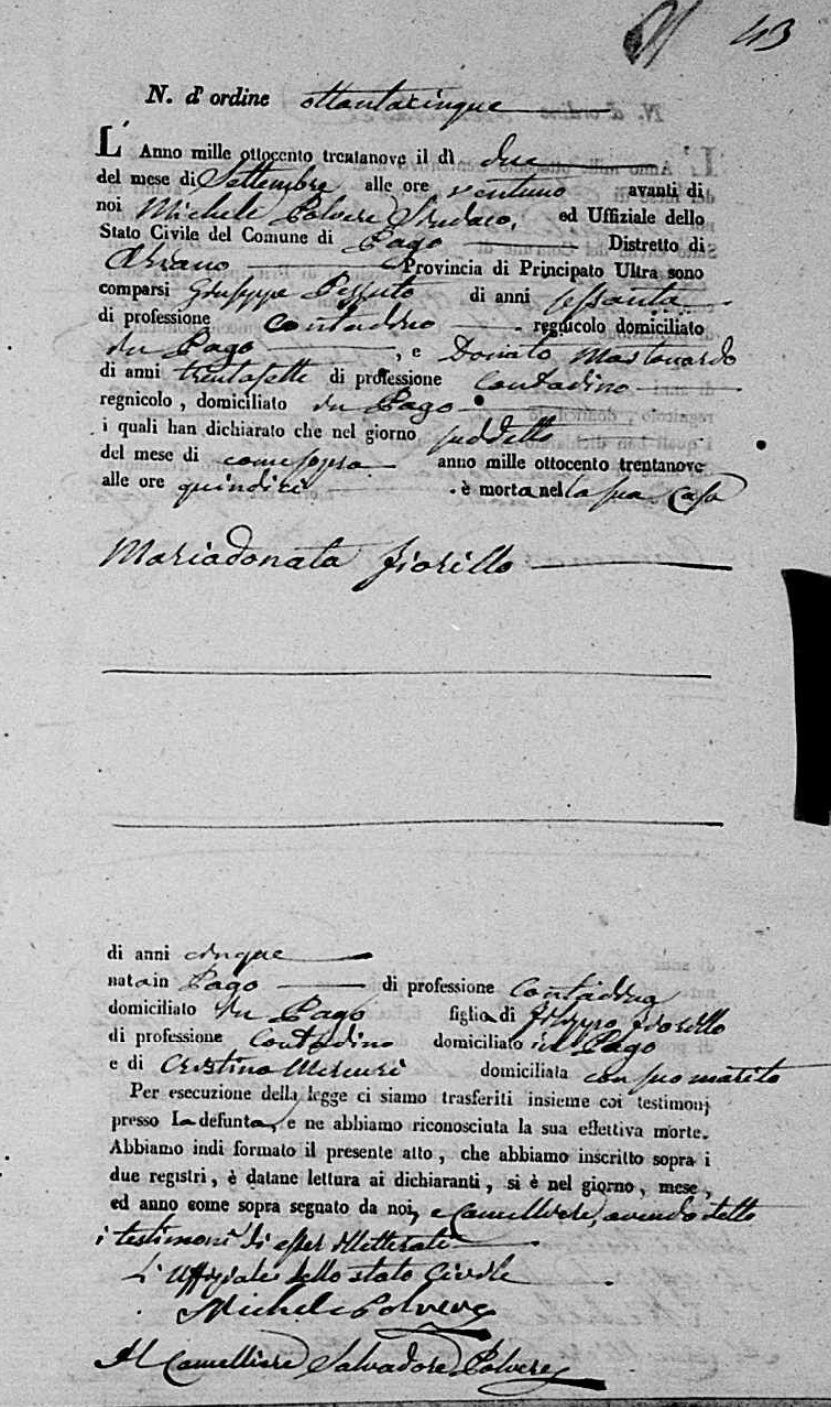 43
N. d' ordine ottantacinque
L' Anno mille ottocento trentanove il dì due
del mese di Settembre alle ore ventuno avanti di
noi Michele Polvere Sindaco, ed Uffiziale dello
Stato Civile del Comune di Pago Distretto di
Ariano Provincia di Principato Ultra sono
comparsi Giuseppe Pezzuto di anni sessanta
di professione contadino regnicolo domiciliato
in Pago , e Donato Mastonardo
di anni trentasette di professione Contadino
regnicolo, domiciliato in Pago
i quali han dichiarato che nel giorno suddetto
del mese di come sopra anno mille ottocento trentanove
alle ore quindici è morta nella sua Casa
Mariadonata fiorillo
di anni cinque
nata in Pago di professione Contadina
domiciliato in Pago figlia di filippo fiorillo
di professione Contadino domiciliato in Pago
e di Cristina Mercuri domiciliata con suo marito
Per esecuzione della legge ci siamo trasferiti insieme coi testimonj
presso La defunta, e ne abbiamo riconosciuta la sua effettiva morte.
Abbiamo indi formato il presente atto, che abbiamo inscritto sopra i
due registri, è datane lettura ai dichiaranti, si è nel giorno, mese,
ed anno come sopra segnato da noi, e Cancelliere, avendo detto
i testimoni di esser illetterati
L' Uffiziale dello stato Civile
Michele Polvere
Il Cancelliere Salvadore Polvere